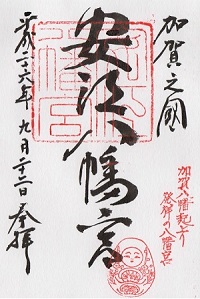 加賀之國
安江八幡宮
平成二十六年 九月二十二日 奉拝
加賀八幡起上り
発祥の八幡宮